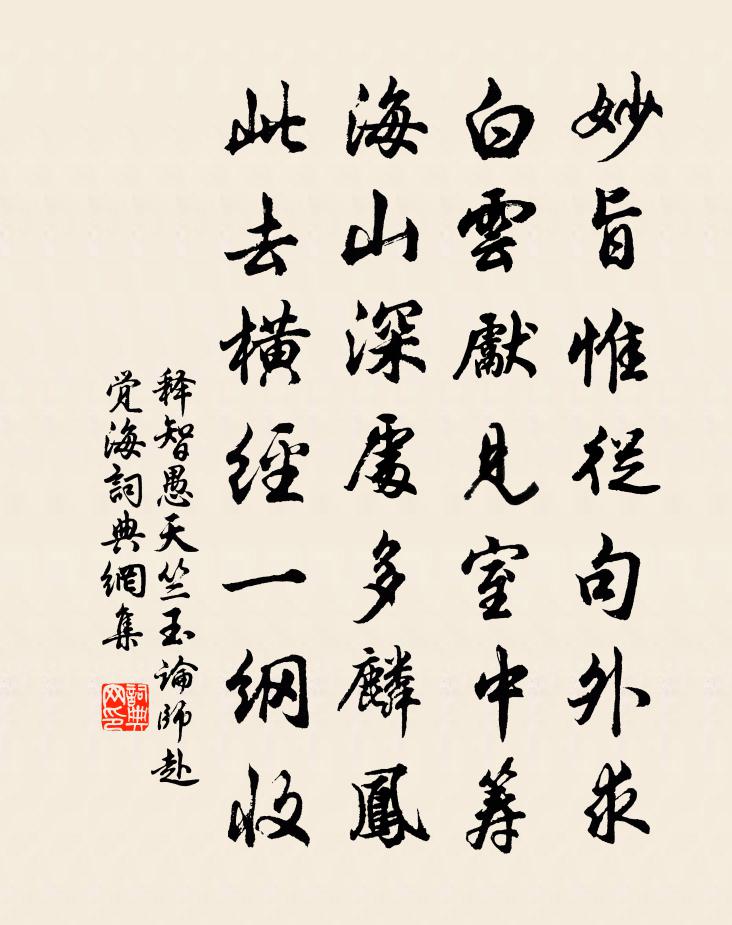 妙旨惟從句外求
白雲獻見室中筹
海山深處多麟鳳
此去橫經一網收
释智愚天竺玉論師赴
觉海詞典網集
詞典网印